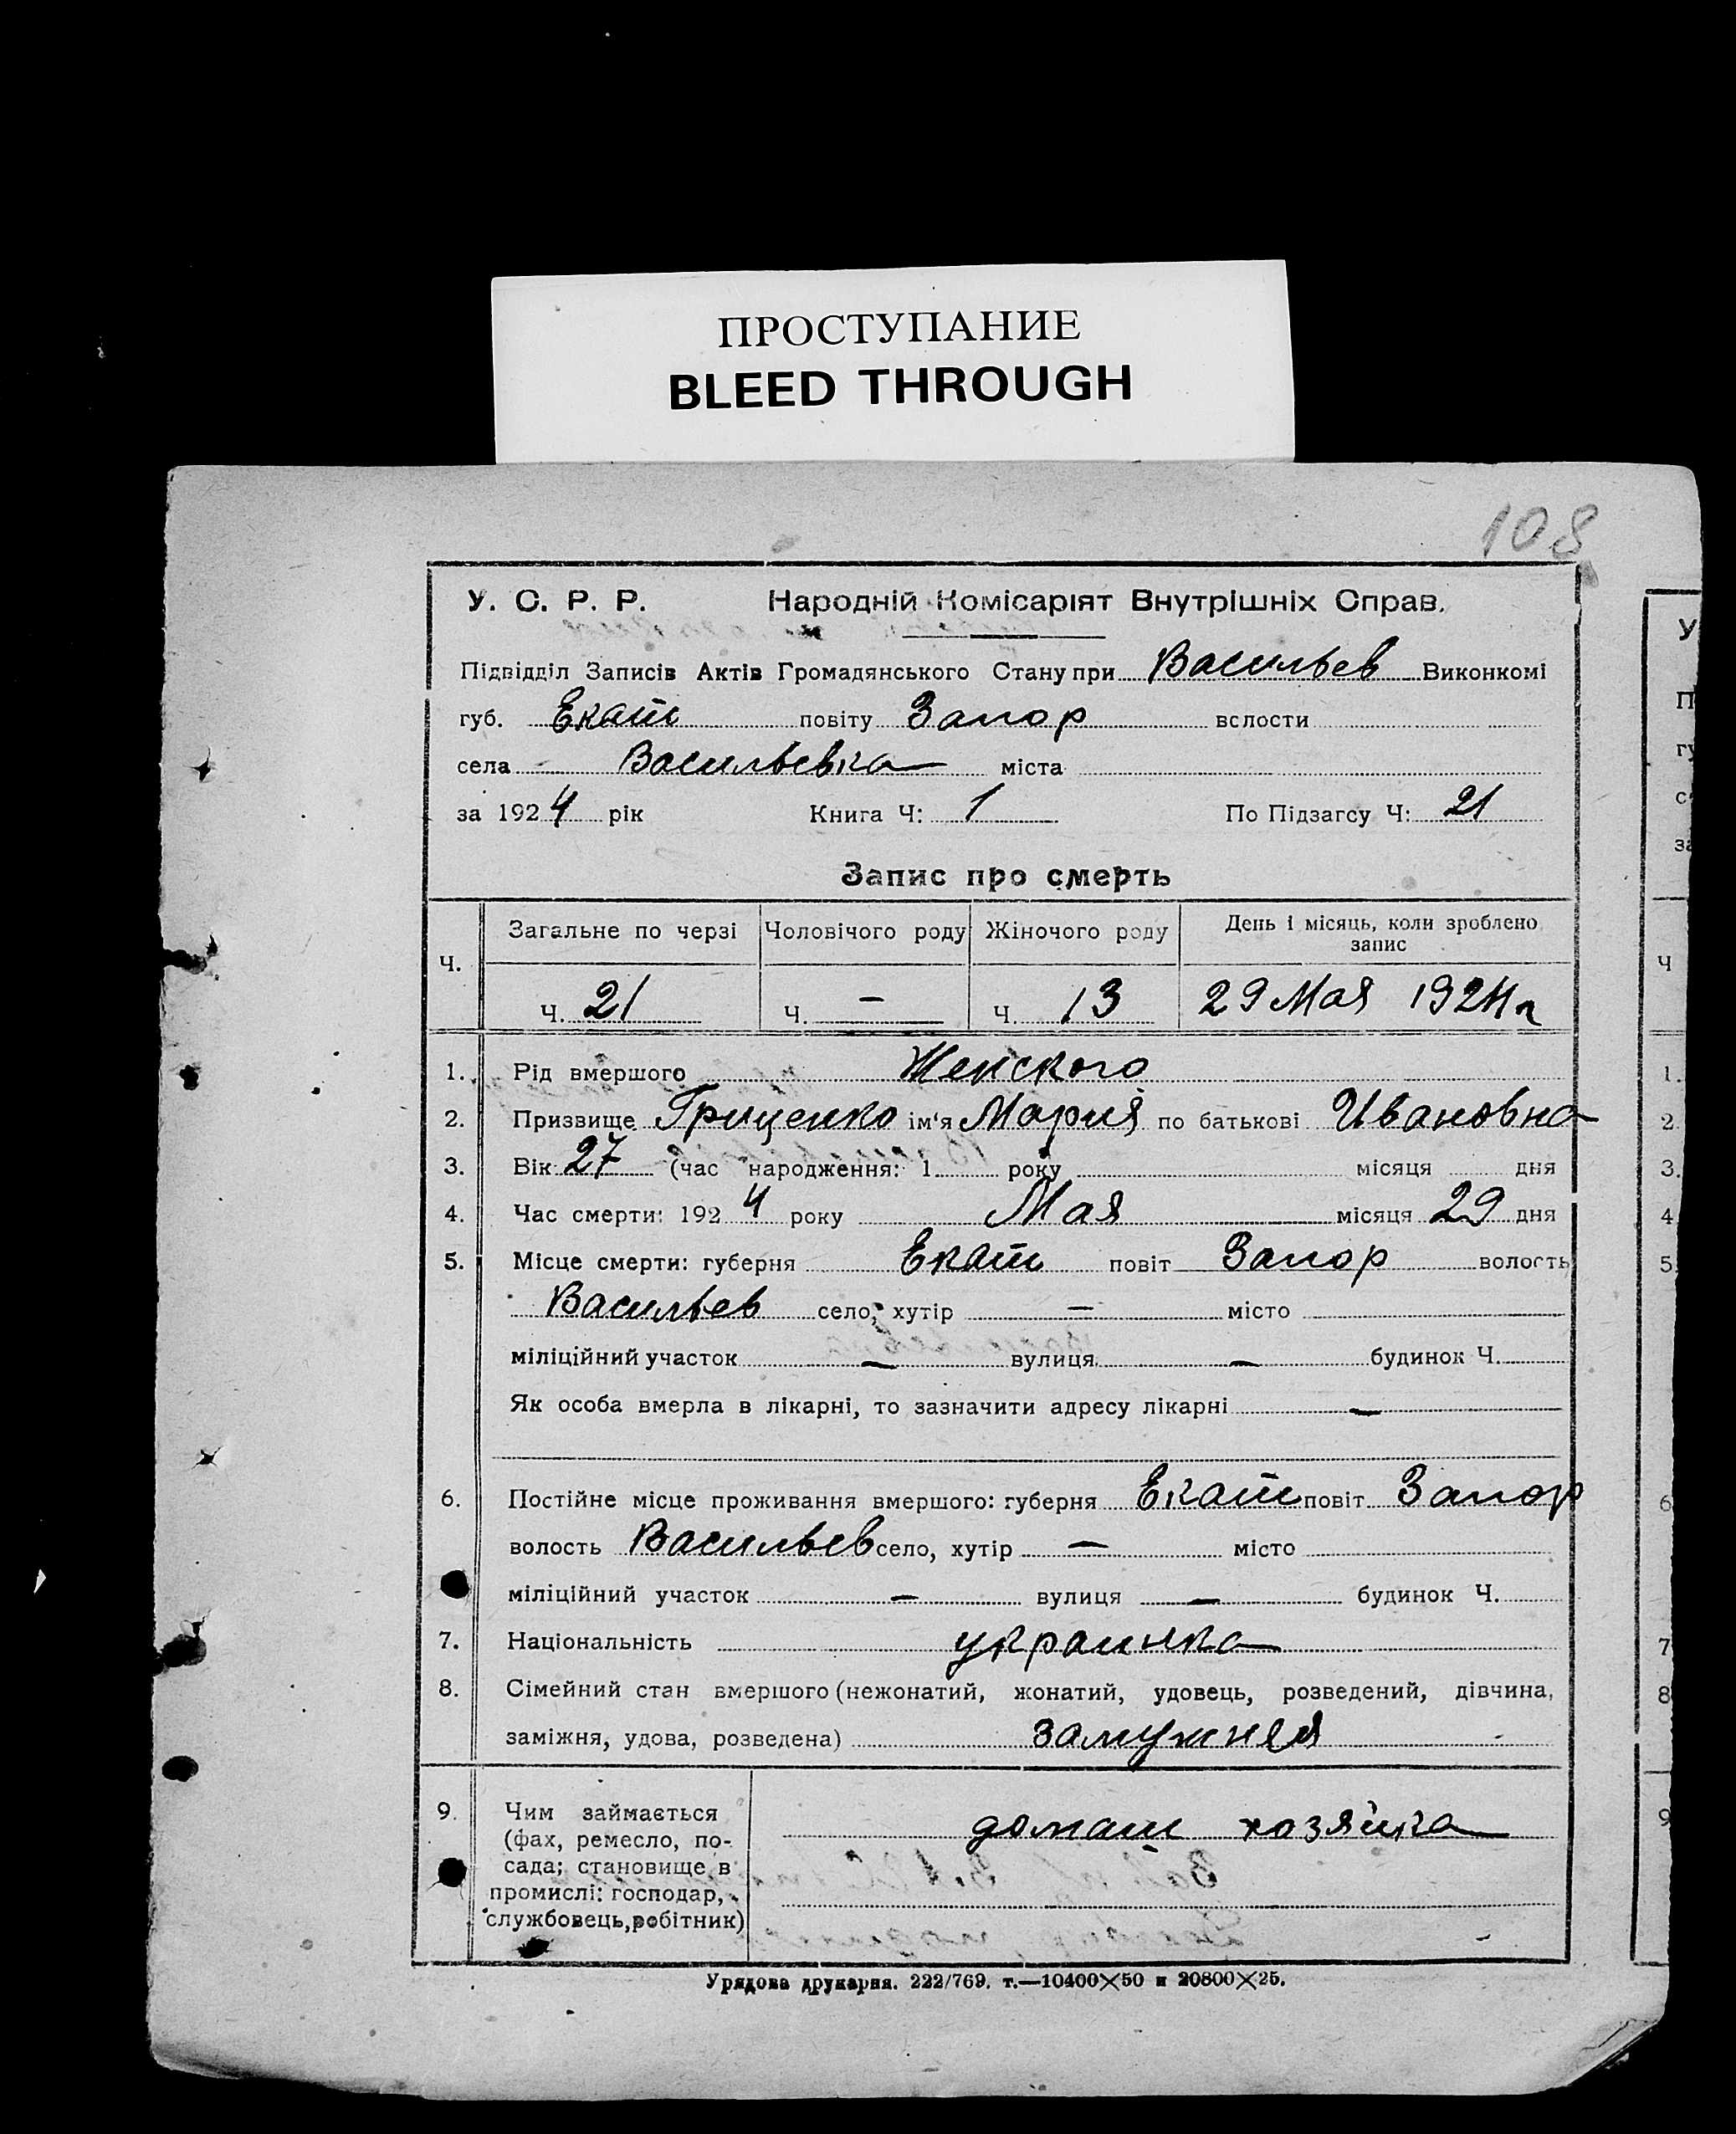 ПРОСТУПАНИЕ
BLEED THROUGH
108
У. С. Р. Р. Народній Комісаріят Внутрішніх Справ.
Підвідділ Записів Актів Громадянського Стану при Васильев Виконкомі
губ. Екат повіту Запор вслости
села Васильевка міста
за 1924 рік Книга Ч: 1 По Підзагсу Ч: 21
Запис про смерть
Ч. Загальне по черзі Чоловічого роду Жіночого роду День і місяць, коли зроблено запис
Ч. 21 Ч. — Ч. 13 29 Мая 1924 г
1. Рід вмершого Женского
2. Призвище Гриценко ім'я Мария по батькові Ивановна
3. Вік 27 (час народження: 1 року місяця дня
4. Час смерти: 1924 року Мая місяця 29 дня
5. Місце смерти: губерня Екат повіт Запор волость
Васильев село, хутір — місто
міліційний участок — вулиця — будинок Ч.
Як особа вмерла в лікарні, то зазначити адресу лікарні —
6. Постійне місце проживання вмершого: губерня Екат повіт Запор
волость Васильев село, хутір — місто
міліційний участок — вулиця — будинок Ч.
7. Національність украинка
8. Сімейний стан вмершого (нежонатий, жонатий, удовець, розведений, дівчина,
заміжня, удова, розведена) замужняя
9. Чим займається
(фах, ремесло, по-
сада; становище в
промислі: господар,
службовець, робітник)
домаш хозяйка
Урядова друкарня. 222/769. т.—10400×50 и 20800×25.